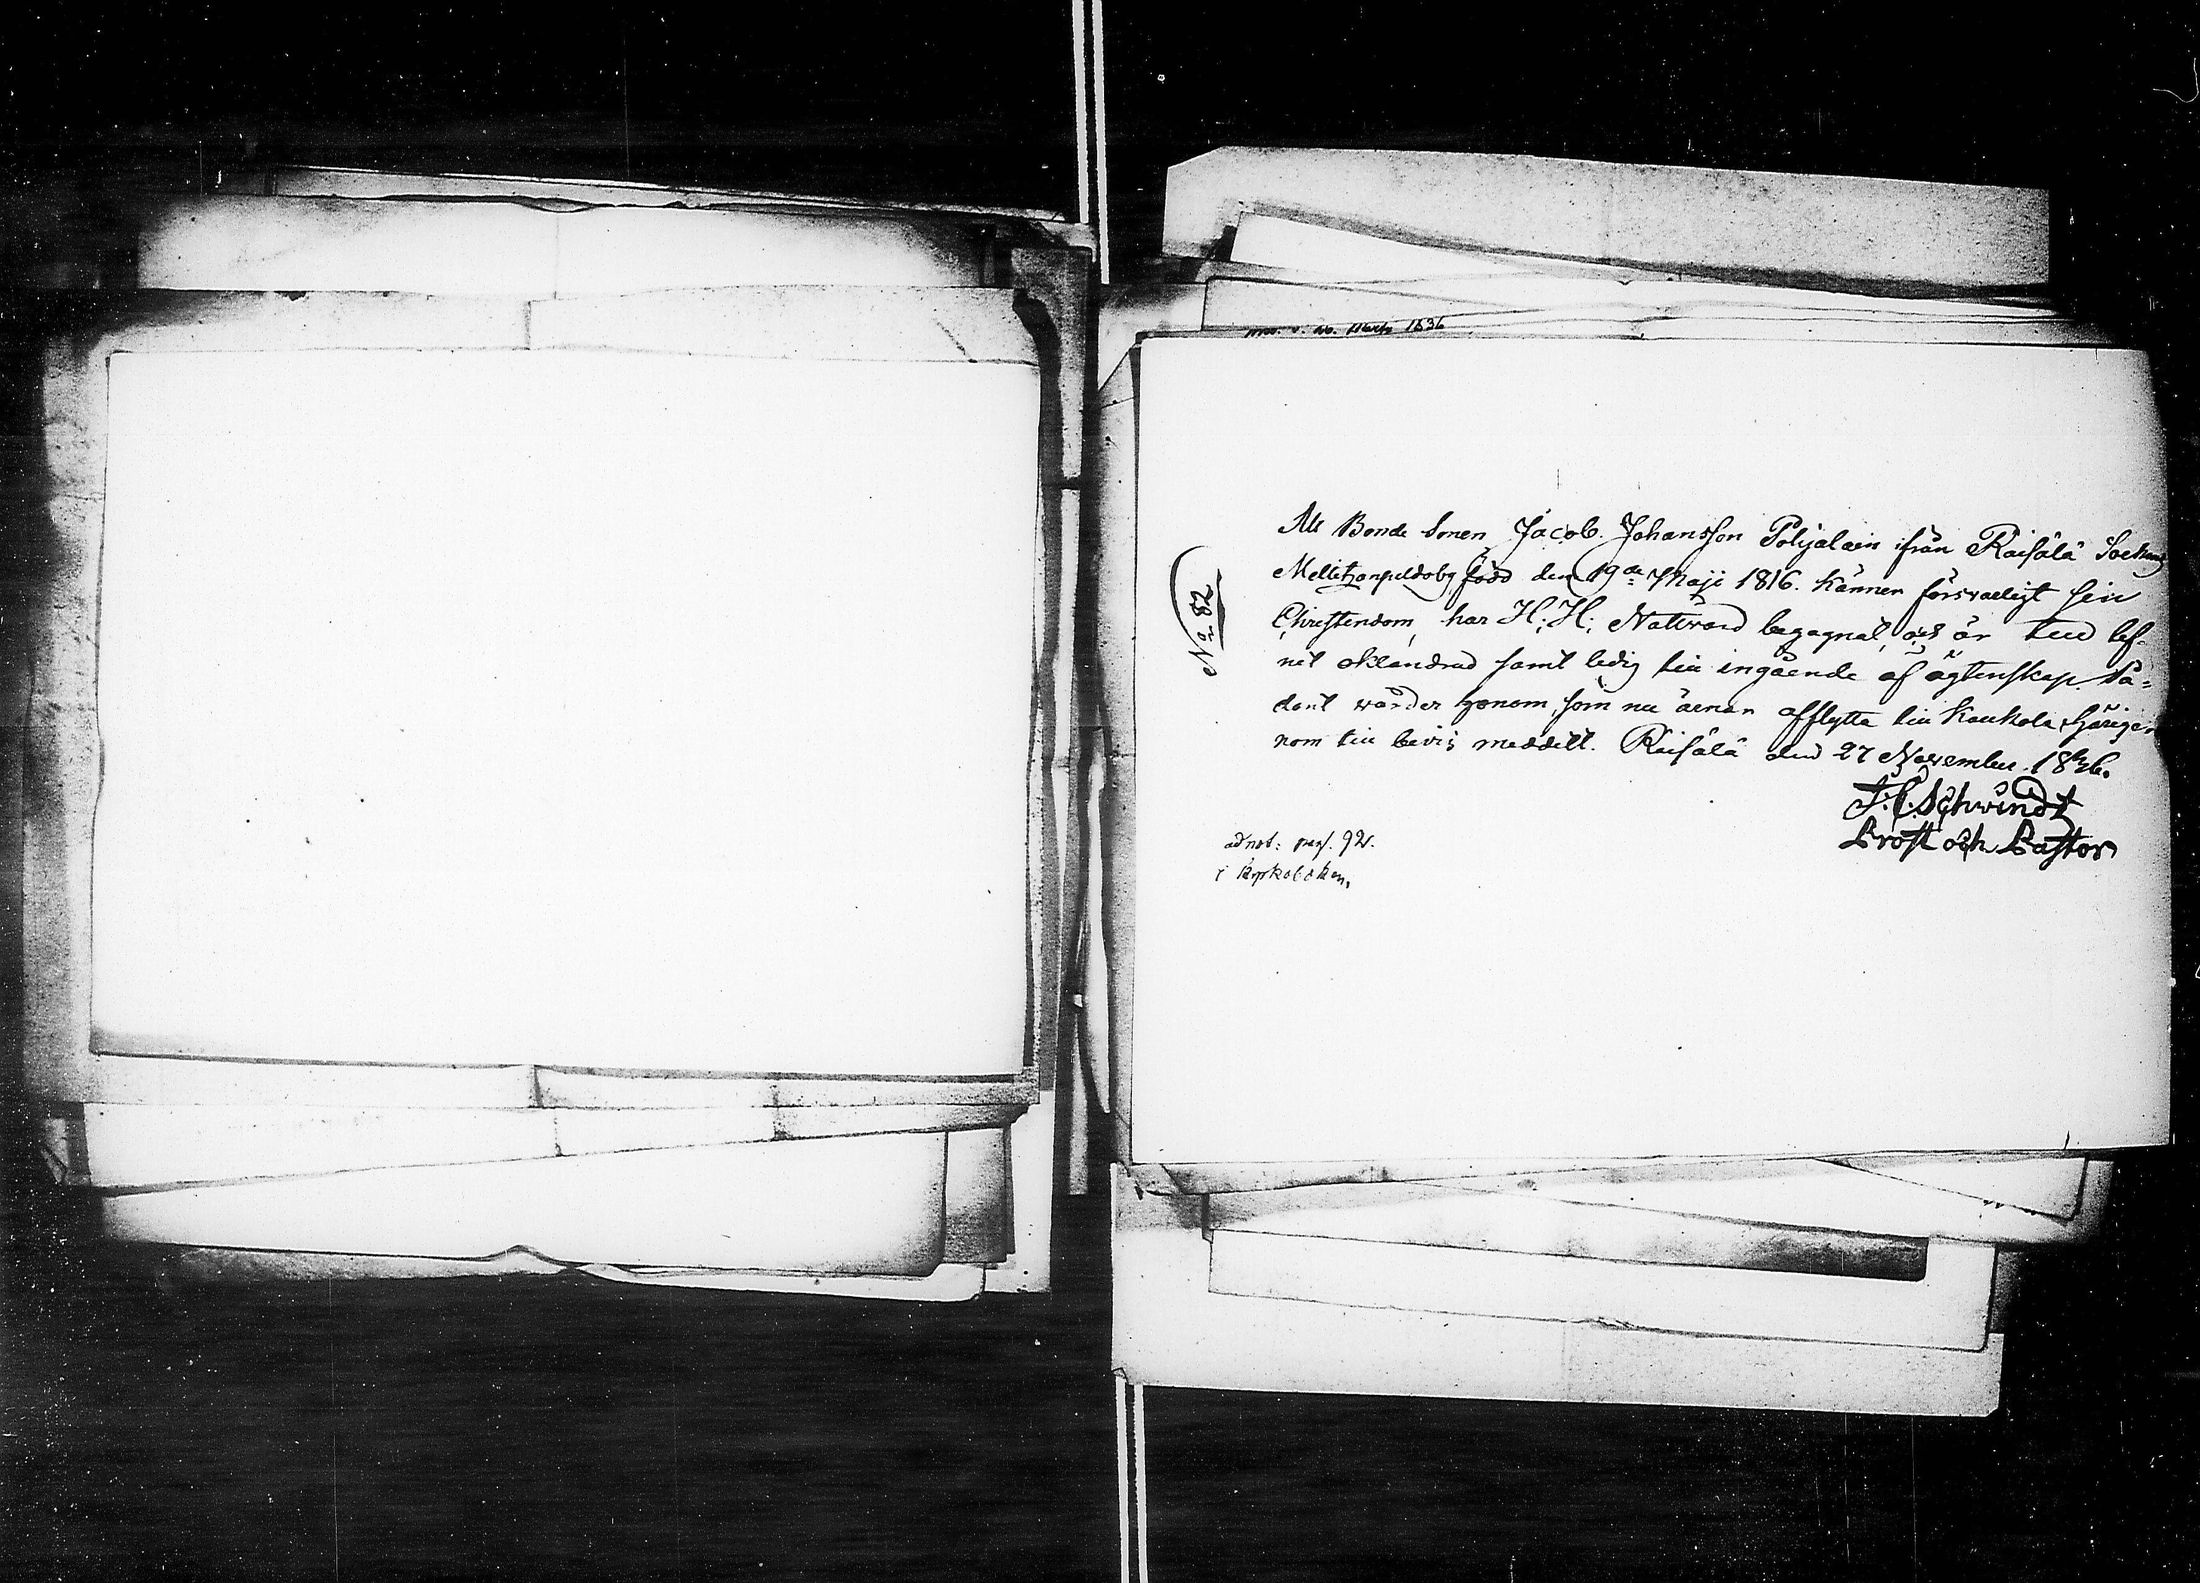 Martii 1836
No 82
At Bonde Sonen Jacob Johansson Pohjalain ifrån Räisälä Sockens
född den 19de Maji 1816. känner försvarligt sin
Christendom, har H: H: Nattvard begagnat, och är till lef-
net oklandrad samt ledig till ingående af ägtenskap. Så-
dant warder honom, som nu ärnar afflytta till Kaukola, härige-
nom till bevis meddelt. Räisälä den 27 November 1836.
Schwindt
Prost och Pastor
adnot: 92.
i kyrkoboken,